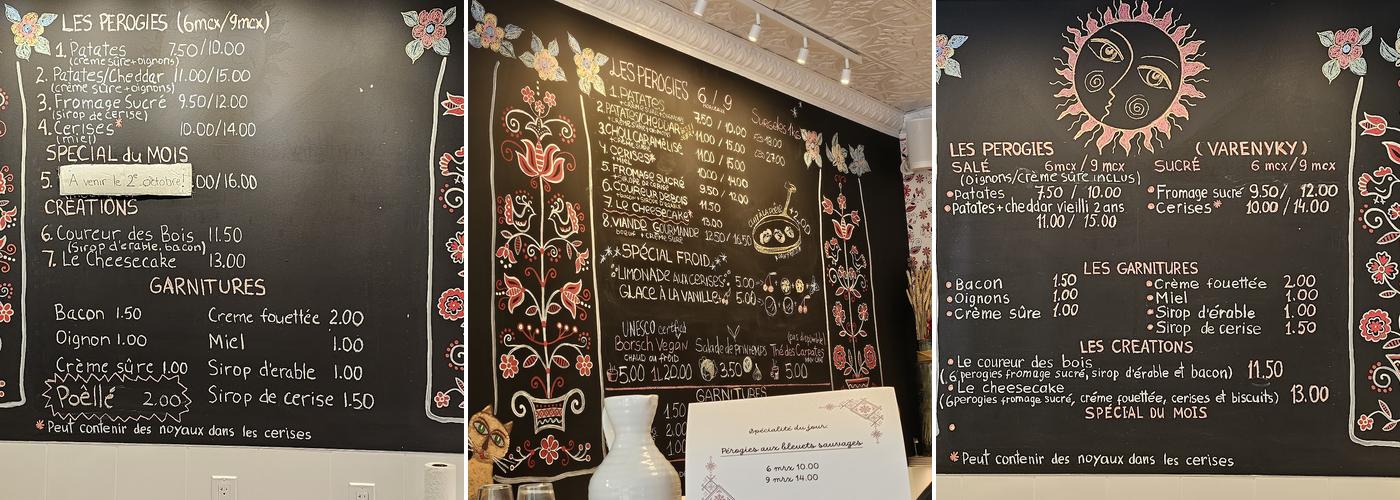 LES PEROGIES (6mcx/9mcx)
1. Patates 7.50/10.00
(crème sure+oignons)
2. Patates/Cheddar 11.00/15.00
(crème sure+oignons)
3. Fromage Sucré 9.50/12.00
(sirop de cerise)
4. Cerises* 10.00/14.00
(miel)
SPÉCIAL du MOIS
5. A venir le 2 octobre! .00/16.00
CRÉATIONS
6. Coureur des Bois 11.50
(sirop d'érable, bacon)
7. Le Cheesecake 13.00
GARNITURES
Bacon 1.50 Creme fouettée 2.00
Oignon 1.00 Miel 1.00
Crème sûre 1.00 Sirop d'erable 1.00
Poêllé 2.00 Sirop de cerise 1.50
* Peut contenir des noyaux dans les cerises
LES PEROGIES 6/9
1. PATATES 7.50 / 10.00
2. PATATES/CHEDDAR 11.00 / 15.00
3. CHOU CARAMÉLISÉ 11.00 / 15.00
4. CERISES* 10.00 / 14.00
+ MIEL
5. FROMAGE SUCRÉ 9.50 / 12.00
6. COUREUR DES BOIS 11.50
7. LE CHEESECAKE* 13.00
8. VIANDE GOURMANDE 12.50/16.50
BOEUF + CRÈME SURE
SPÉCIAL FROID
LIMONADE AUX CERISES 5.00
GLACE À LA VANILLE 5.00
UNESCO certified
Borsch Vegan
CHAUD OU FROID
5.00 1L 20.00
Salade de printemps
3.50
Thé des Carpates
5.00
GARNITURES
1.50
1.00
Spécialité du jour:
Pérogies aux bleuets sauvages
6 mrx 10.00
9 mrx 14.00
LES PEROGIES (VARENYKY)
SALÉ 6mcx / 9 mcx
(Oignons/crème sure inclus)
• Patates 7.50 / 10.00
• Patates+cheddar vieilli 2 ans
11.00 / 15.00
SUCRÉ 6 mcx / 9 mcx
• Fromage sucré 9.50/ 12.00
• Cerises* 10.00 / 14.00
LES GARNITURES
• Bacon 1.50
• Oignons 1.00
• Crème sûre 1.00
• Crème fouettée 2.00
• Miel 1.00
• Sirop d'érable 1.00
• Sirop de cerise 1.50
LES CREATIONS
• Le coureur des bois
(6 perogies fromage sucré, sirop d'érable et bacon) 11.50
• Le cheesecake
(6 perogies fromage sucré, créme fouettée, cerises et biscuits) 13.00
SPÉCIAL DU MOIS
•
* Peut contenir des noyaux dans les cerises